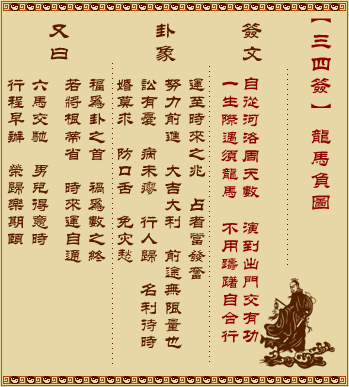 【三四簽】 龍馬負圖
簽文
自從河洛周天數 演到出門交有功
一生際遇須龍馬 不用躊躇自合行
卦象
運至時來之兆 占者當發奮
努力前進 大吉大利 前途無限量也
訟有憂 病未瘳 行人歸 名利待時
婚莫求 防口舌 免灾愁
又曰
福爲卦之首 禍爲數之終
若將根蒂省 時來運自通
六馬交馳 男兒得意時
行程早辦 榮歸樂期頤